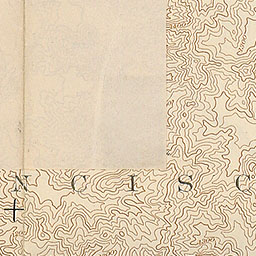 N C I S C